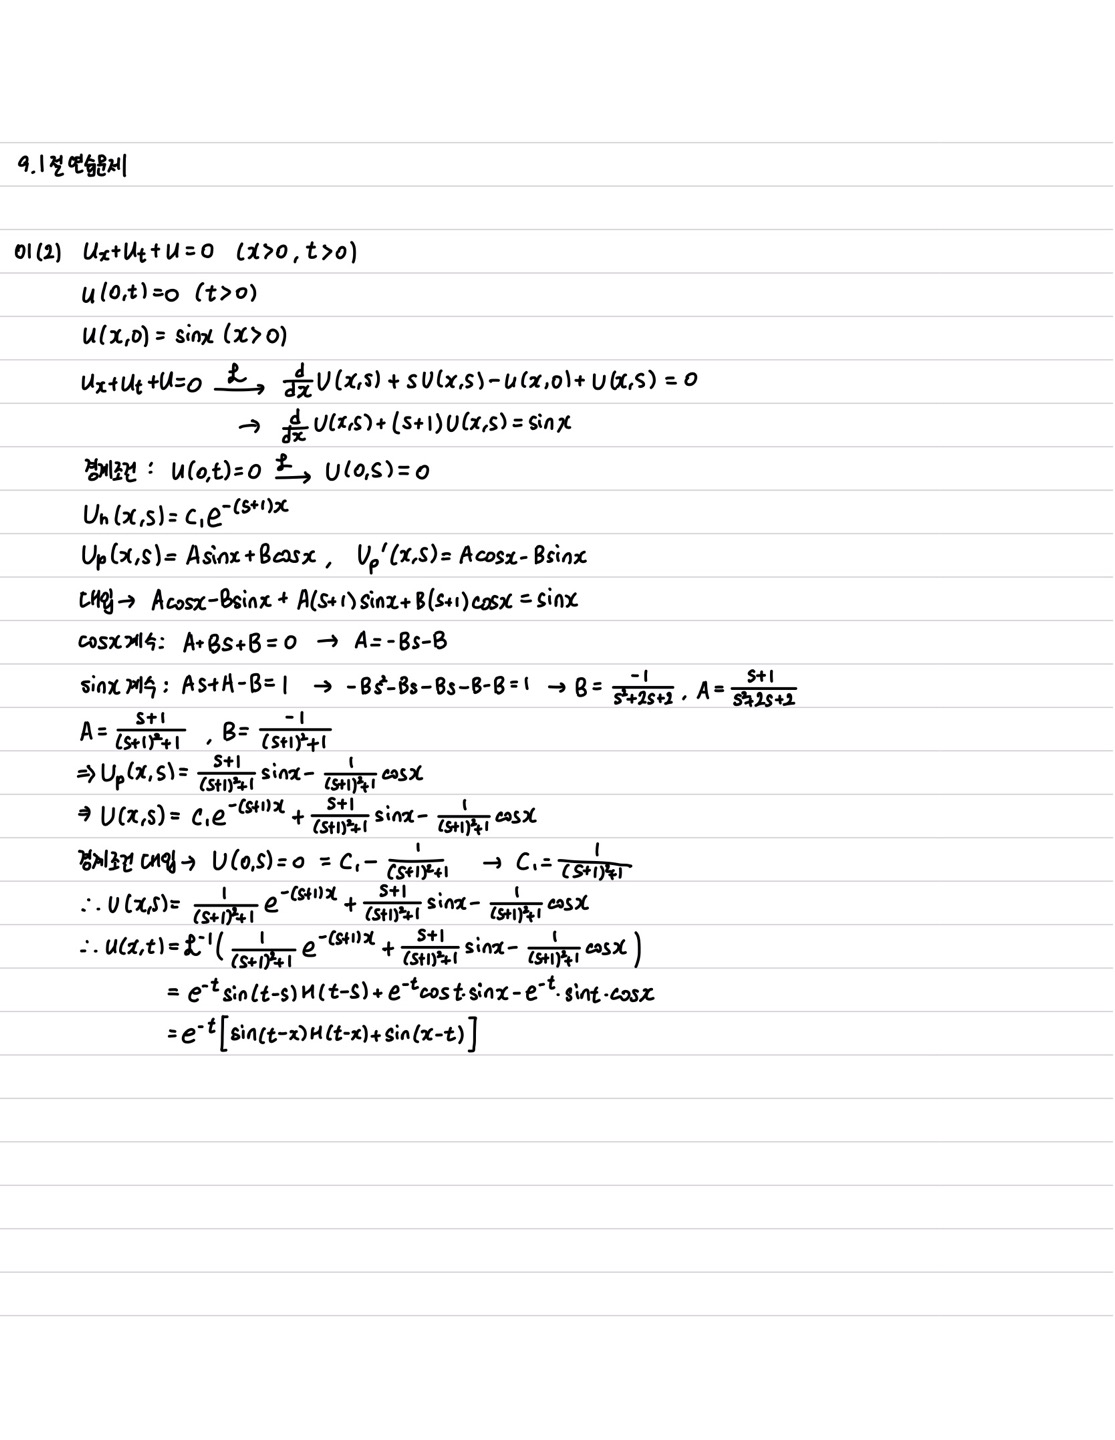 9.1절 연습문제
01(2) u_x+u_t+u=0 (x>0, t>0)
u(0,t)=0 (t>0)
u(x,0)= sinx (x>0)
u_x+u_t+u=0 ℒ→ d/dx U(x,s)+sU(x,s)-u(x,0)+U(x,s)=0
→ d/dx U(x,s)+(s+1)U(x,s)=sinx
경계조건: u(0,t)=0 ℒ→ U(0,s)=0
U_h(x,s)=c₁e^{-(s+1)x}
U_p(x,s)= Asinx+Bcosx, U_p'(x,s)= Acosx-Bsinx
대입→ Acosx-Bsinx+A(s+1)sinx+B(s+1)cosx=sinx
cosx계수: A+Bs+B=0 → A=-Bs-B
sinx계수: As+A-B=1 → -Bs²-Bs-Bs-B-B=1 → B= -1/(s²+2s+2), A= (s+1)/(s²+2s+2)
A= (s+1)/((s+1)²+1), B= -1/((s+1)²+1)
⇒ U_p(x,s)= (s+1)/((s+1)²+1) sinx - 1/((s+1)²+1) cosx
⇒ U(x,s)= c₁e^{-(s+1)x} + (s+1)/((s+1)²+1) sinx - 1/((s+1)²+1) cosx
경계조건 대입→ U(0,s)=0 = C₁- 1/((s+1)²+1) → C₁= 1/((s+1)²+1)
∴ U(x,s)= 1/((s+1)²+1) e^{-(s+1)x} + (s+1)/((s+1)²+1) sinx - 1/((s+1)²+1) cosx
∴ u(x,t)=ℒ⁻¹( 1/((s+1)²+1) e^{-(s+1)x} + (s+1)/((s+1)²+1) sinx - 1/((s+1)²+1) cosx )
= e^{-t}sin(t-s)H(t-s)+e^{-t}cost·sinx-e^{-t}·sint·cosx
=e^{-t}[sin(t-x)H(t-x)+sin(x-t)]